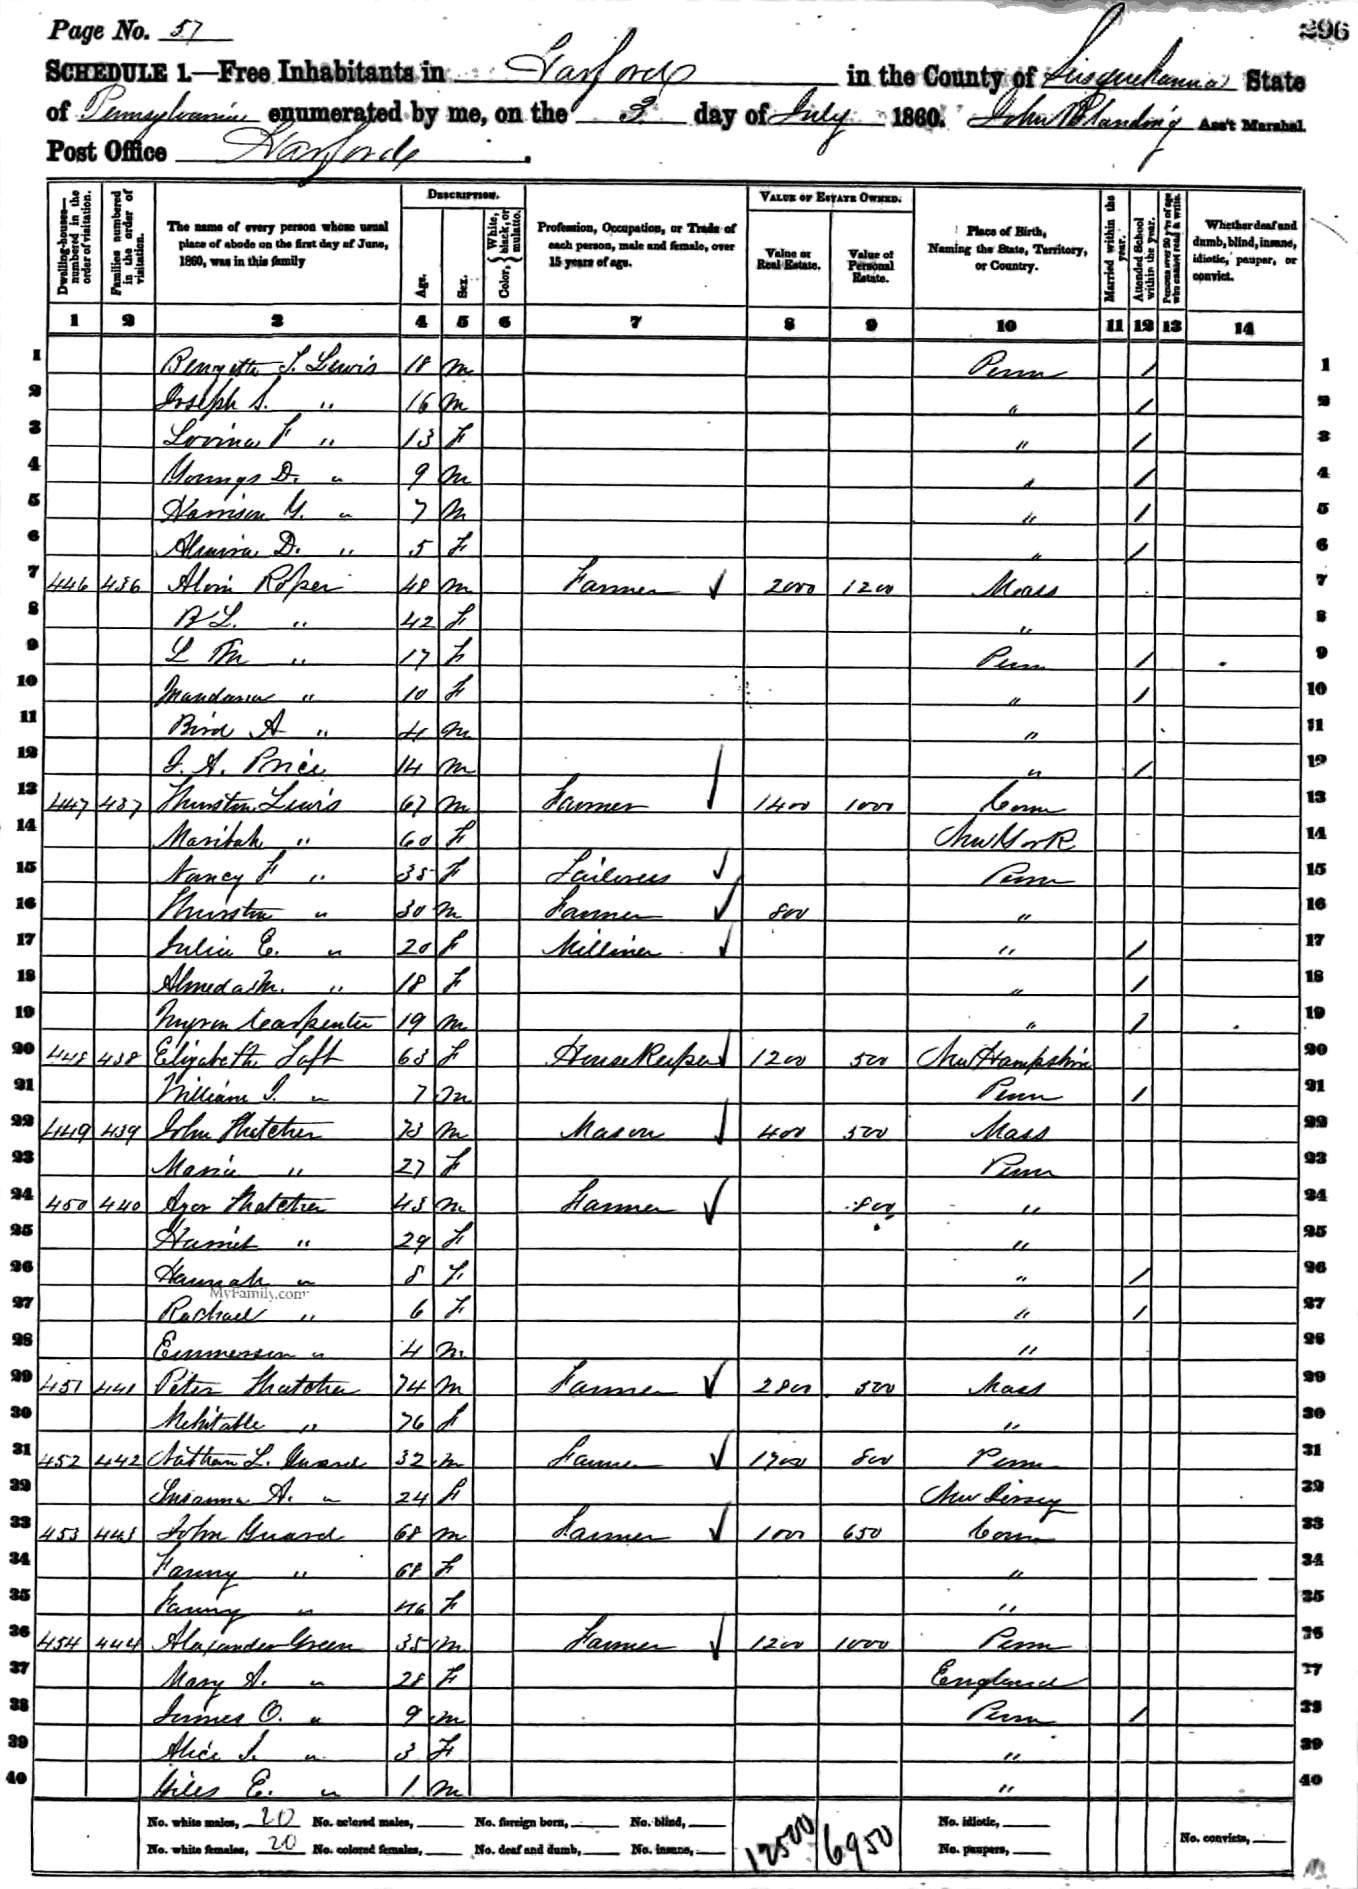 Page No. 57
296
SCHEDULE 1.—Free Inhabitants in Harford in the County of Susquehanna State
of Pennsylvania enumerated by me, on the 3 day of July 1860. John Blanding Ass't Marshal.
Post Office Harford.
Dwelling-houses—numbered in the order of visitation.
Families numbered in the order of visitation.
The name of every person whose usual place of abode on the first day of June, 1860, was in this family
DESCRIPTION.
Age.
Sex.
Color, { White, black, or mulatto.
Profession, Occupation, or Trade of each person, male and female, over 15 years of age.
VALUE OF ESTATE OWNED.
Value of Real Estate.
Value of Personal Estate.
Place of Birth, Naming the State, Territory, or Country.
Married within the year.
Attended School within the year.
Persons over 20 y'rs of age who cannot read & write.
Whether deaf and dumb, blind, insane, idiotic, pauper, or convict.
1 2 3 4 5 6 7 8 9 10 11 12 13 14
1 S. Lewis 18 m Penn / 1
2 Joseph S. " 16 m " / 2
3 Lovina F " 13 F " / 3
4 Youngs D. " 9 m " / 4
5 Harrison G. " 7 m " / 5
6 Almira D. " 5 F " / 6
7 446 436 Alvin Roper 48 m Farmer ✓ 2000 1200 Mass 7
8 B L. " 42 F " 8
9 L M " 17 F Penn / 9
10 Mandana " 10 F " / 10
11 Bird A " 4 m " 11
12 J. A. Price 14 m " / 12
13 447 437 Thurston Lewis 67 m Farmer ✓ 1400 1000 Conn 13
14 Maribah " 60 F New York 14
15 Nancy F " 35 F Tailoress ✓ Penn 15
16 Thurston " 30 m Farmer ✓ 800 " 16
17 Julia E. " 20 F Milliner ✓ " / 17
18 Almeda M. " 18 F " / 18
19 Myron Carpenter 19 m " / 19
20 448 438 Elizabeth Taft 63 F House Keeper ✓ 1200 500 New Hampshire 20
21 William J. " 7 m Penn / 21
22 449 439 John Thatcher 73 m Mason ✓ 400 500 Mass 22
23 Maria " 27 F Penn 23
24 450 440 Azor Thatcher 43 m Farmer ✓ 800 " 24
25 Harriet " 29 F " 25
26 Hannah " 8 F " / 26
MyFamily.com
27 Rachael " 6 F " / 27
28 Emmerson " 4 m " 28
29 451 441 Peter Thatcher 74 m Farmer ✓ 2800 500 Mass 29
30 Mehitable " 76 F " 30
31 452 442 Nathan L. Guard 32 m Farmer ✓ 1900 800 Penn 31
32 Susanna A. " 24 F New Jersey 32
33 453 443 John Guard 68 m Farmer ✓ 1000 650 Conn 33
34 Fanny " 68 F " 34
35 Fanny " 46 F " 35
36 454 444 Alexander Green 35 m Farmer ✓ 1200 1000 Penn 36
37 Mary A. " 28 F England 37
38 James O. " 9 m Penn / 38
39 Alice J. " 3 F " 39
40 Giles E. " 1 m " 40
No. white males, 20 No. colored males, No. foreign born, No. blind, 12500 6950 No. idiotic,
No. white females, 20 No. colored females, No. deaf and dumb, No. insane, No. paupers, No. convicts,